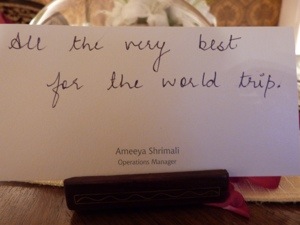 All the very best
for the world trip.
Ameeya Shrimali
Operations Manager